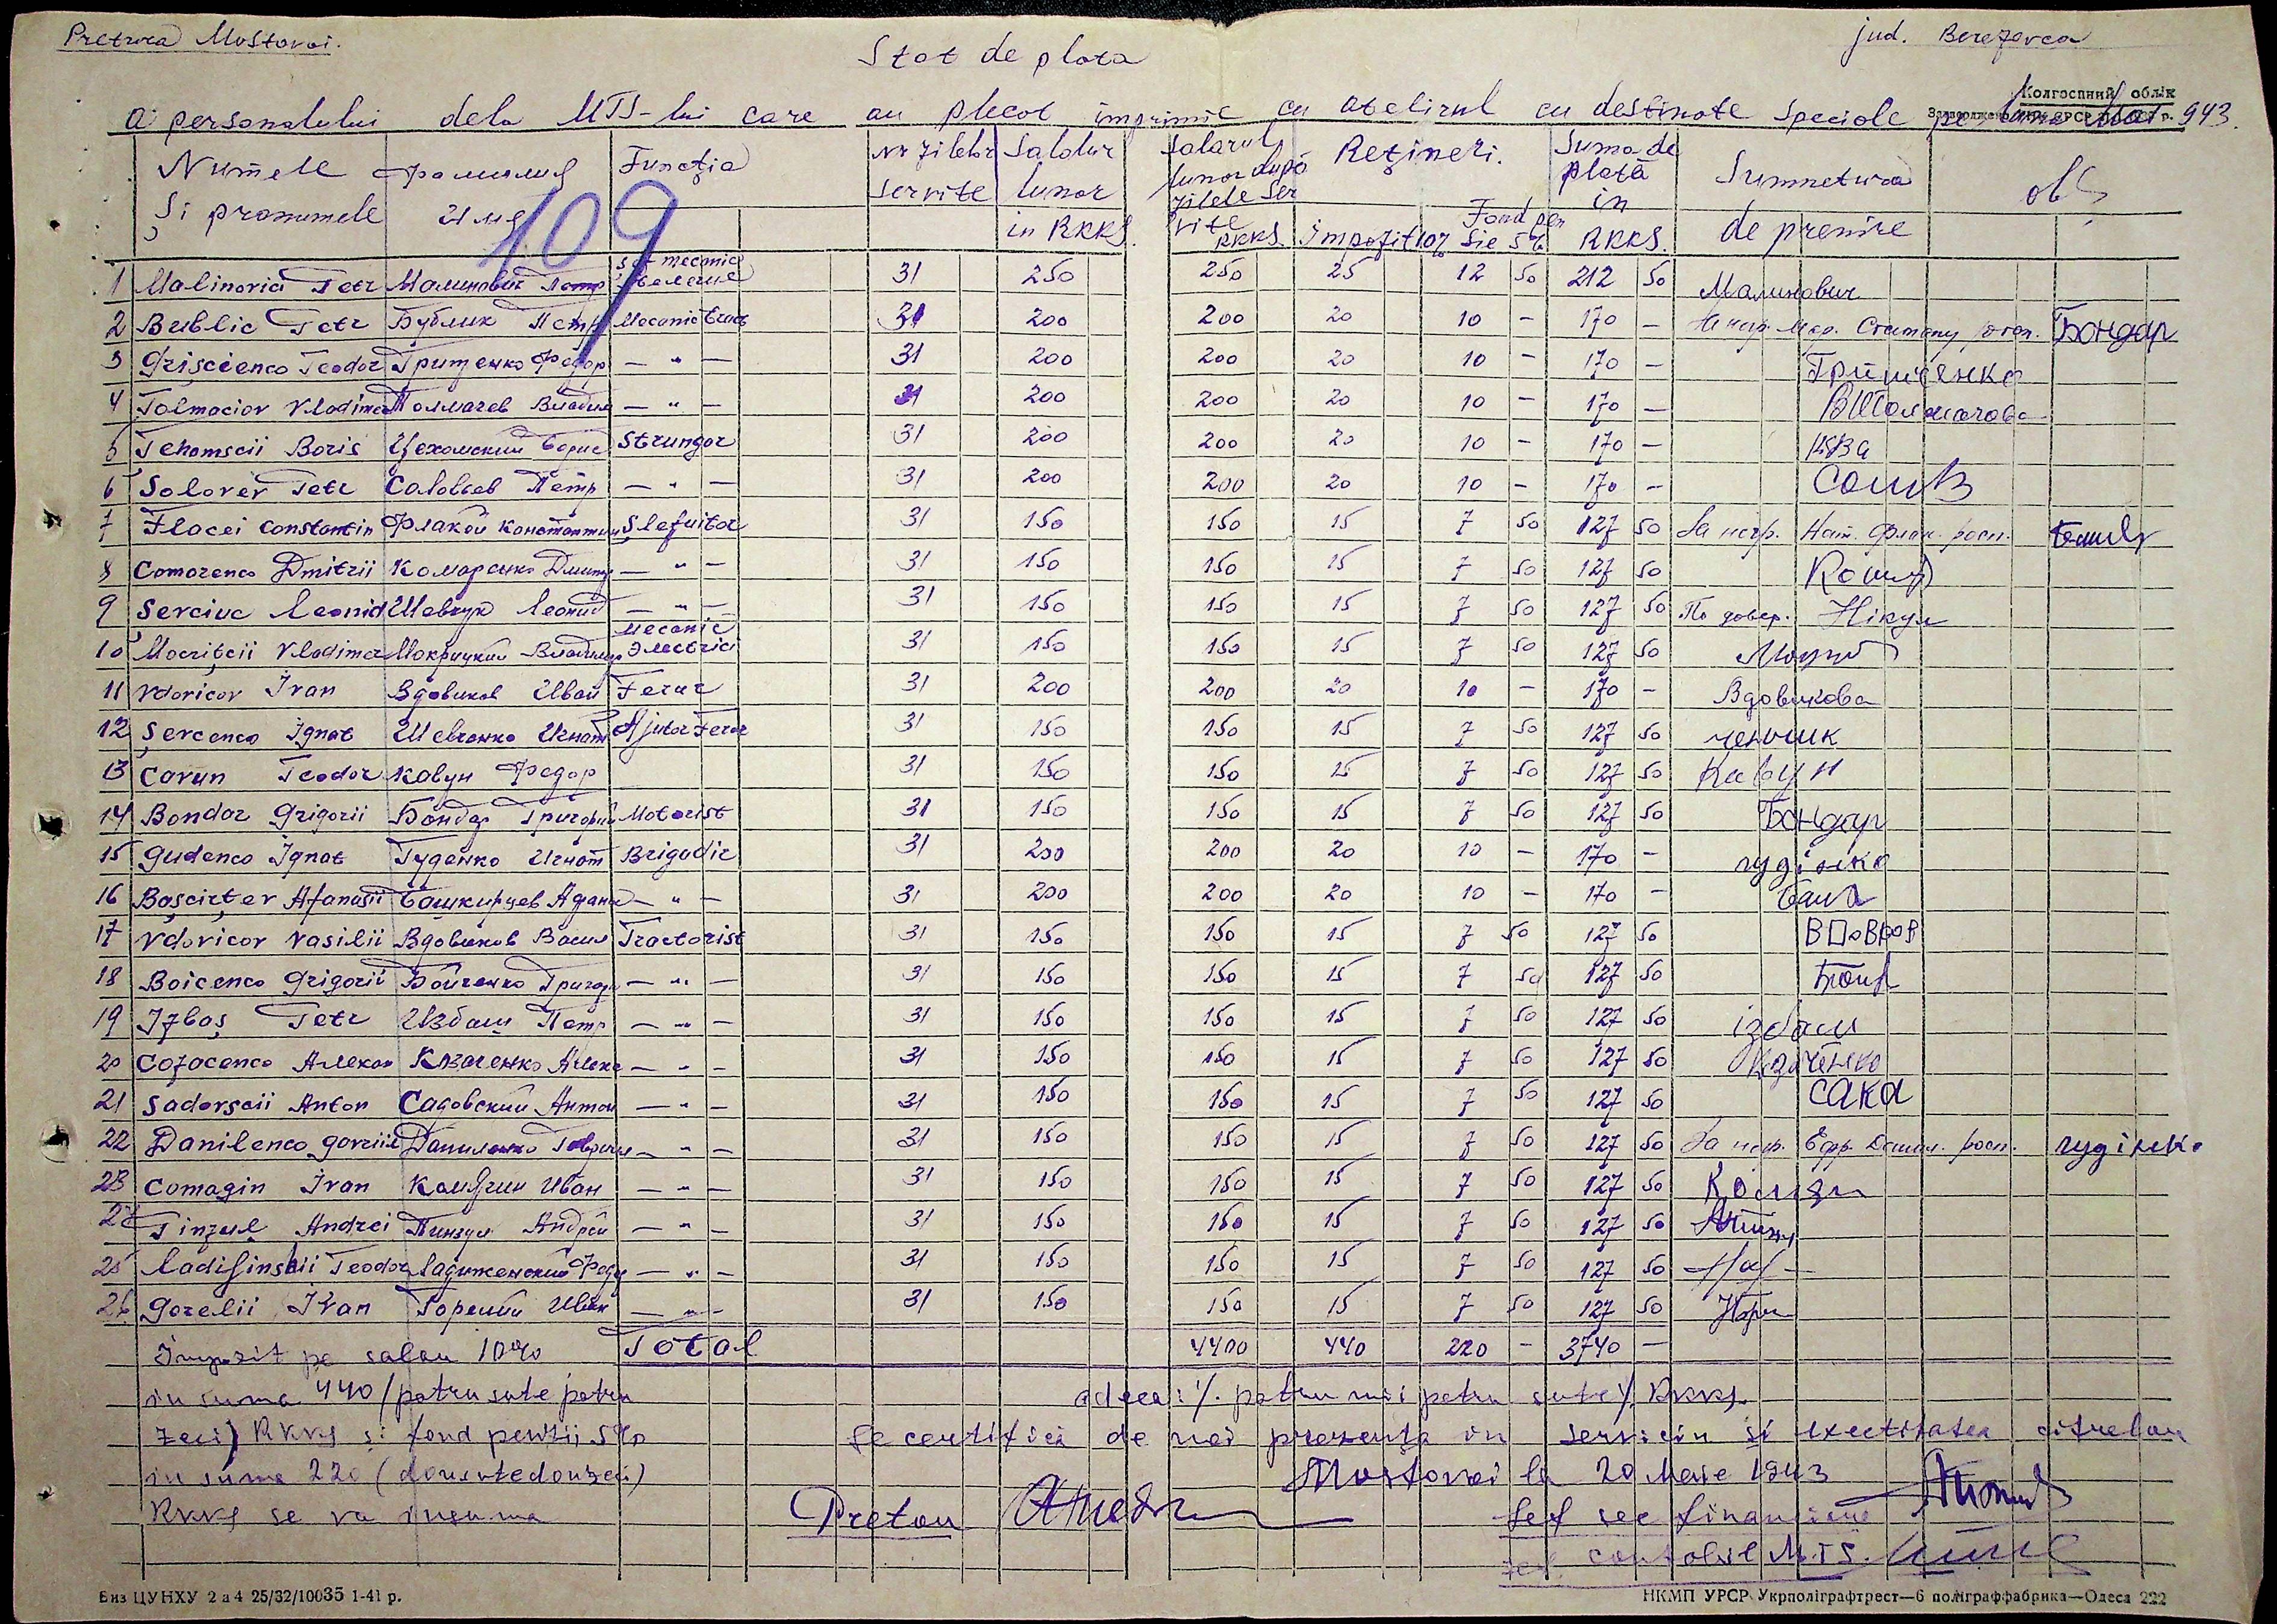 Pretura Mostovoi.
jud. Berezovca
Stat de plata
Колгоспний облік
a personalului dela MTS-lui care au plecat imprimie cu atelirul cu destinate speciale pe luna Mai 943.
Numele фамилия Funcţia Nr zilelor Salolur Salarul Reţineri. Suma de Sumnetura obs
şi pronumele имя servite lunar lunar după plată de premire
in RKKS. zilele ser in
vite Fond pen
RKKS. Impozit 10% sie 5% RKKS.
109
1 Malinovici Petr Малинович Петр şef mecanic 31 250 250 25 12 50 212 50 Малинович
2 Bublic Petr Бублик Петр Mecanic tract 31 200 200 20 10 — 170 — Бондар
3 Grişcienco Teodor Грищенко Федор — " — 31 200 200 20 10 — 170 — Грищенко
4 Tolmaciov Vladimir Толмачев Владим — " — 31 200 200 20 10 — 170 — В Толмачова
5 Tehomscii Boris Цехомский Борис Strungar 31 200 200 20 10 — 170 —
6 Solovev Petr Соловьев Петр — " — 31 200 200 20 10 — 170 —
7 Flacei Constantin Флакой Константин Şlefuitor 31 150 150 15 7 50 127 50 За негр.
8 Comarenco Dmitrii Комаренко Дмитр — " — 31 150 150 15 7 50 127 50
9 Şevciuc Leonid Шевчук Леонид — " — 31 150 150 15 7 50 127 50 По довер. Нікул
10 Mocriţcii Vladimer Мокрицкий Владимир Mecanic Electrici 31 150 150 15 7 50 127 50
11 Vdovicov Ivan Вдовиков Иван Ferar 31 200 200 20 10 — 170 — Вдовикова
12 Şevcenco Ignat Шевченко Игнат Ajutor Ferar 31 150 150 15 7 50 127 50
13 Cavun Teodor Кавун Федор 31 150 150 15 7 50 127 50 Кавун
14 Bondar Grigorii Бондар Григорий Motorist 31 150 150 15 7 50 127 50 Бондар
15 Gudenco Ignat Гуденко Игнат Brigadir 31 200 200 20 10 — 170 — гудінко
16 Başcirţev Afanasii Башкирцев Афана — " — 31 200 200 20 10 — 170 —
17 Vdovicov Vasilii Вдовиков Васил Tractorist 31 150 150 15 7 50 127 50
18 Boicenco Grigorii Бойченко Григори — " — 31 150 150 15 7 50 127 50
19 Izbaş Petr Избаш Петр — " — 31 150 150 15 7 50 127 50 ізбаш
20 Cozacenco Алексан Казаченко Алекс — " — 31 150 150 15 7 50 127 50
21 Sadovscii Anton Садовский Антон — " — 31 150 150 15 7 50 127 50 САКа
22 Danilenco Gavriil Даниленко Гаврил — " — 31 150 150 15 7 50 127 50 За негр. гудінко
23 Comagin Ivan Комягин Иван — " — 31 150 150 15 7 50 127 50
24 Pinzul Andrei Пинзул Андрей — " — 31 150 150 15 7 50 127 50
25 Ladijinskii Teodor Ладиженский Федр — " — 31 150 150 15 7 50 127 50
26 Gorelii Ivan Горелий Иван — " — 31 150 150 15 7 50 127 50
Impozit pe salau 10% Total 4400 440 220 — 3740 —
in suma 440 /patru sute patru adeca:/. patru mii patru sute/. RKKS.
zeci) RKKS şi fond pensii 5% Se certifică de noi prezenţa in serviciu si exectitatea cifrelor
in suma 220 (douasutedouăzeci) Mostovoi la 20 Maie 1943
RKKS se va insuma Pretou Şef sec financiare
Şef contabil M.T.S.
Биз ЦУНХУ 2 а4 25/32/10035 1-41 р.
НКМП УРСР Укрполіграфтрест—6 поліграффабрика—Одеса 222